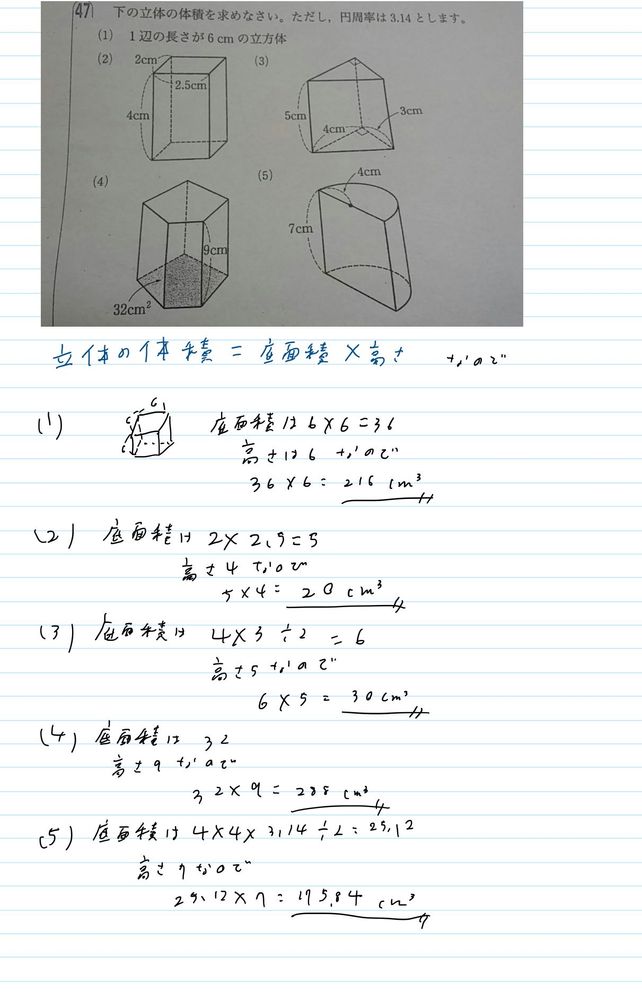 47 下の立体の体積を求めなさい。ただし，円周率は3.14とします。
(1) 1辺の長さが6cmの立方体
(2) (3)
2cm
2.5cm
4cm
5cm
4cm
3cm
(4) (5)
9cm
32cm²
4cm
7cm
立体の体積 = 底面積 × 高さ なので
(1) 底面積は 6×6=36
6
6
6
高さは6 なので
36×6= 216 cm³
(2) 底面積は 2×2.5=5
高さ4なので
5×4= 20 cm³
(3) 底面積は 4×3÷2 = 6
高さ5なので
6×5 = 30cm³
(4) 底面積は 32
高さ9なので
32×9= 288 cm³
(5) 底面積は 4×4×3.14÷2=25.12
高さ7なので
25.12×7= 175.84 cm³